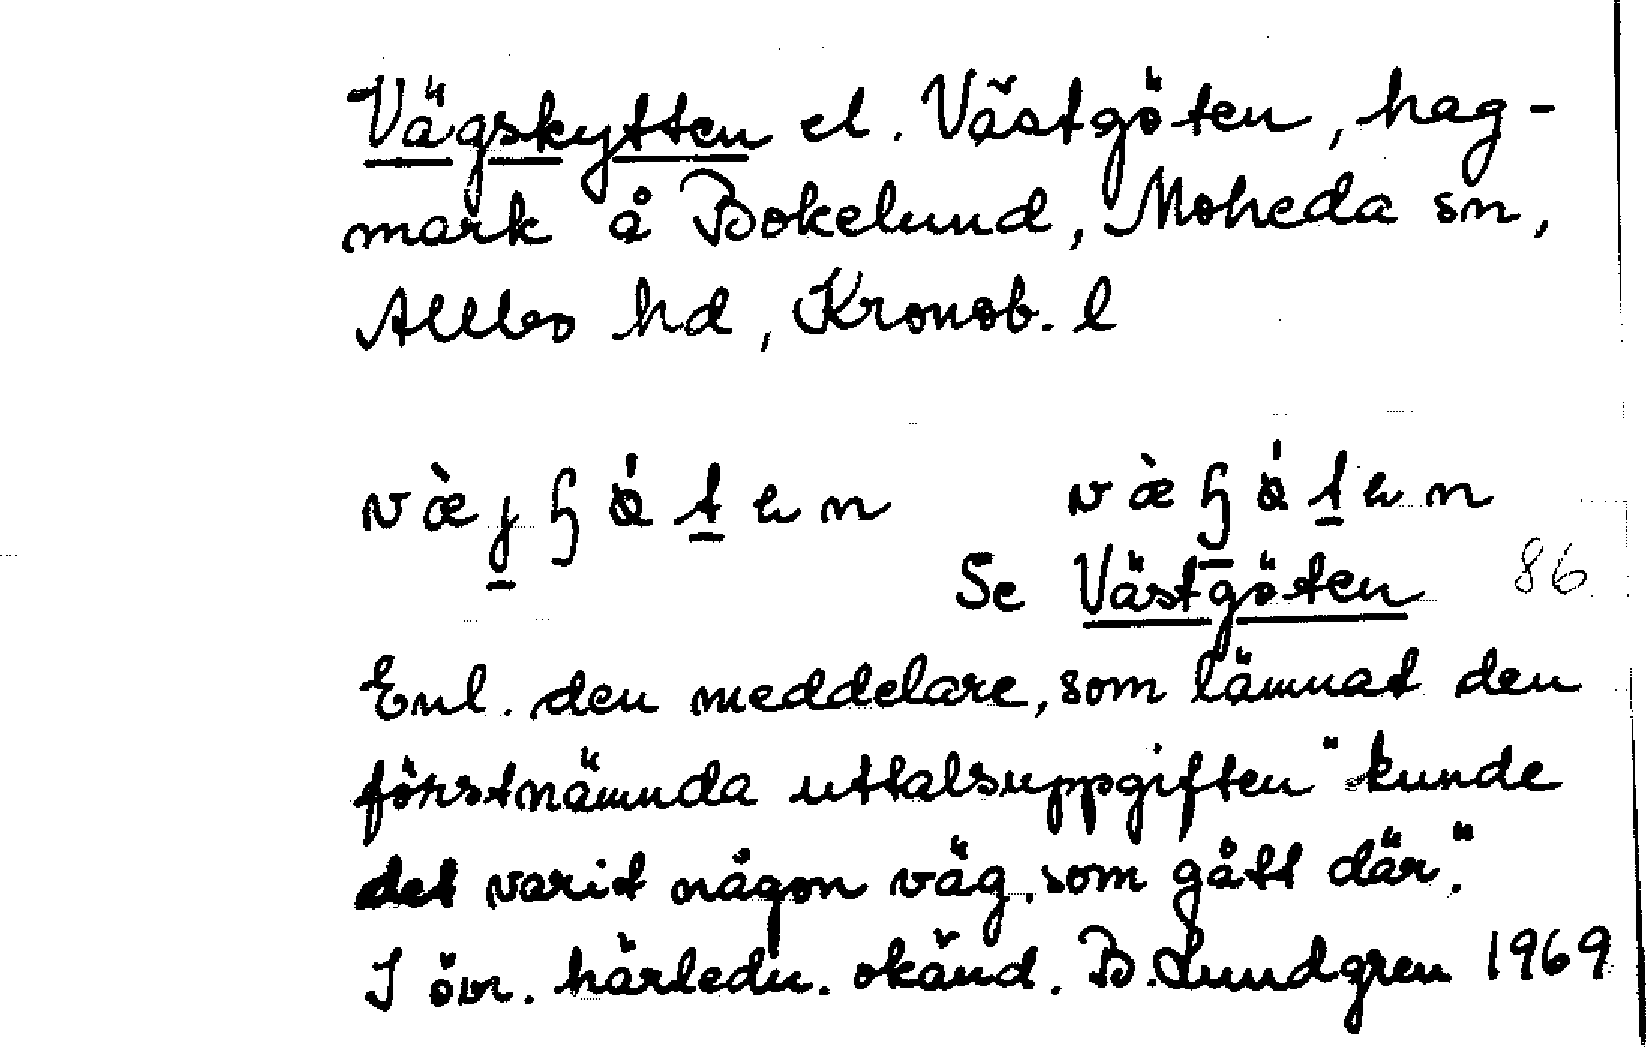 Vägskytten el. Västgöten, hag-
mark å Bokelund, Moheda sn,
Allbo hd, Kronob. l
Se Västgöten 86
Enl. den meddelare, som lämnat den
förstnämnda uttalsuppgiften "kunde
det varit någon väg, som gått där."
I övr. härledn. okänd. B. Lundgren 1969